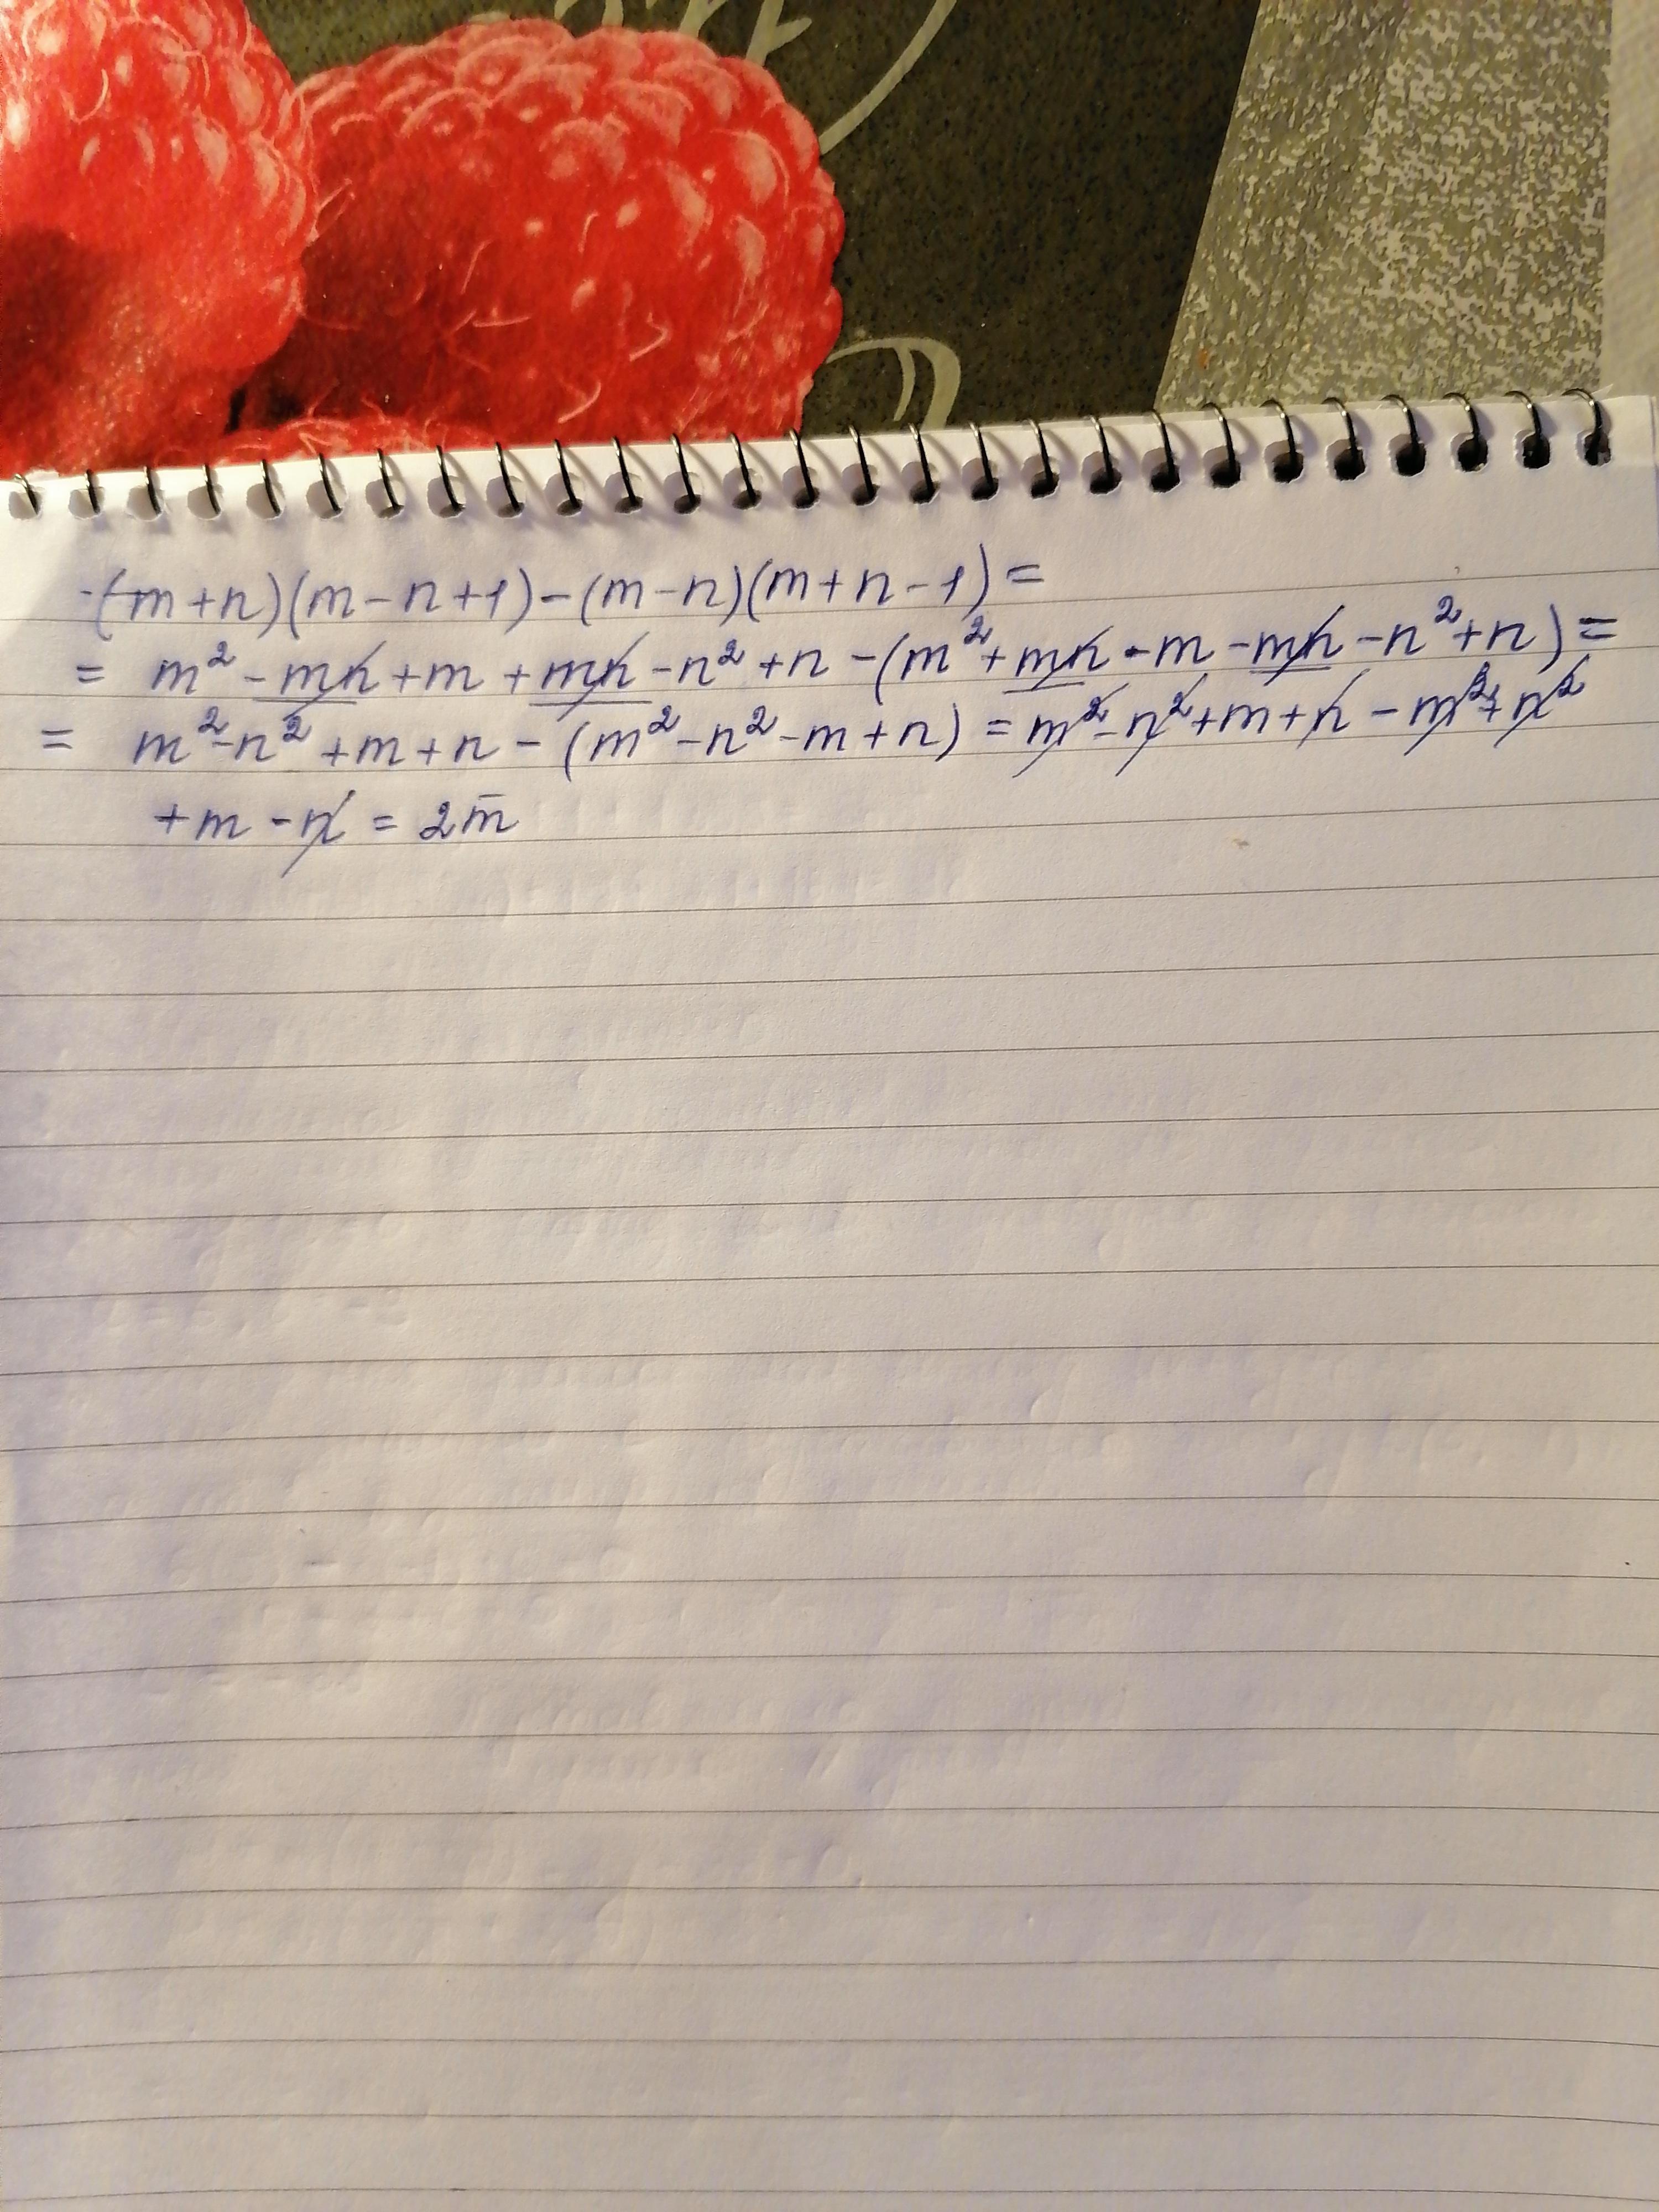 (m+n)(m-n+1)-(m-n)(m+n-1)=
= m²-mn+m+mn-n²+n-(m²+mn-m-mn-n²+n)=
= m²-n²+m+n-(m²-n²-m+n)=m²-n²+m+n-m²+n²
+m-n=2m